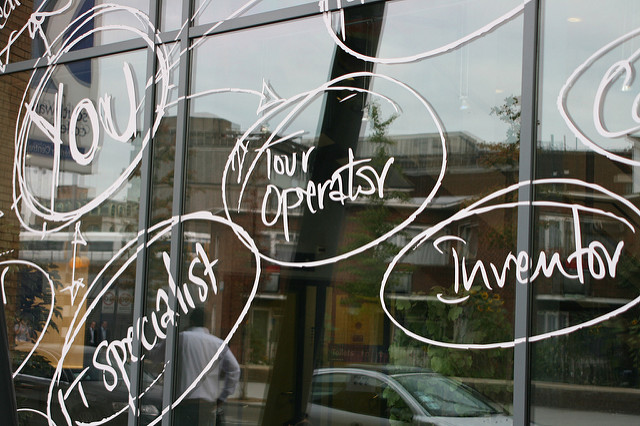 You
Tour
operator
Inventor
IT specialist